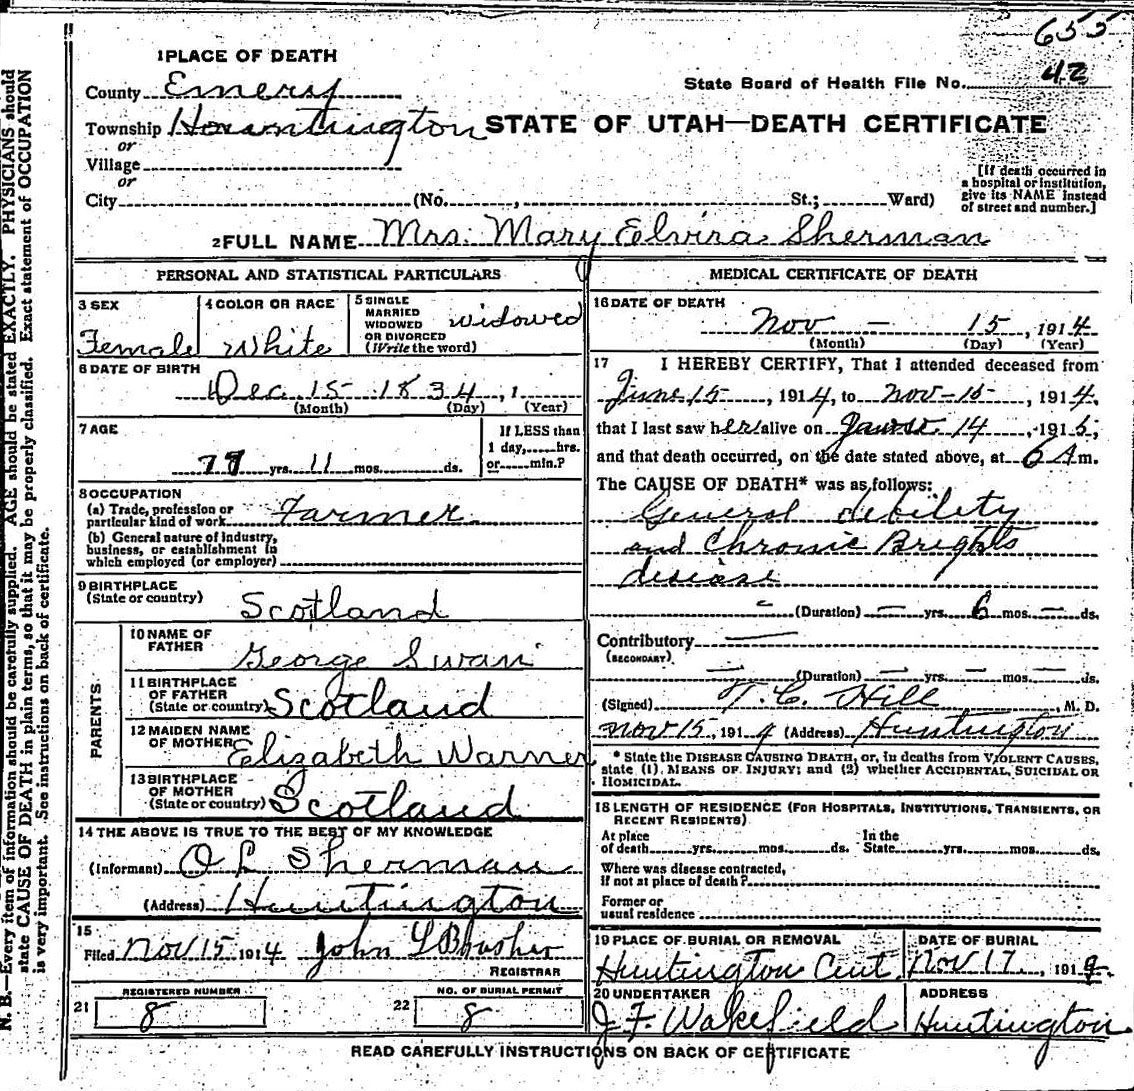 655
42
1 PLACE OF DEATH
County Emery
State Board of Health File No.
Township Hounthington
STATE OF UTAH—DEATH CERTIFICATE
or
Village
or
City (No. , St.; Ward)
[If death occurred in
a hospital or institution,
give its NAME instead
of street and number.]
2 FULL NAME Mrs. Mary Elvira Sherman
PERSONAL AND STATISTICAL PARTICULARS
3 SEX
Female
4 COLOR OR RACE
White
5 SINGLE
MARRIED
WIDOWED
OR DIVORCED
(Write the word)
widowed
6 DATE OF BIRTH
Dec. 15 1834, 1
(Month) (Day) (Year)
7 AGE
yrs. 11 mos. ds.
If LESS than
1 day, hrs.
or min.?
8 OCCUPATION
(a) Trade, profession or
particular kind of work
Farmer
(b) General nature of industry,
business, or establishment in
which employed (or employer)
9 BIRTHPLACE
(State or country)
Scotland
PARENTS
10 NAME OF
FATHER
George Swan
11 BIRTHPLACE
OF FATHER
(State or country)
Scotland
12 MAIDEN NAME
OF MOTHER
Elizabeth Warner
13 BIRTHPLACE
OF MOTHER
(State or country)
Scotland
14 THE ABOVE IS TRUE TO THE BEST OF MY KNOWLEDGE
(Informant) O L Sherman
(Address) Huntington
15
Filed Nov 15 1914 John L
REGISTRAR
REGISTERED NUMBER
21 8
NO. OF BURIAL PERMIT
22 8
MEDICAL CERTIFICATE OF DEATH
16 DATE OF DEATH
Nov — 15, 1914
(Month) (Day) (Year)
17 I HEREBY CERTIFY, That I attended deceased from
June 15, 1914, to Nov-15, 1914,
that I last saw her alive on 14, 1915,
and that death occurred, on the date stated above, at 6 A m.
The CAUSE OF DEATH* was as follows:
General debility
and Chronic Brights
disease
(Duration) — yrs. 6 mos. — ds.
Contributory —
(SECONDARY)
— (Duration) — yrs. — mos. — ds.
(Signed) T. C. Hill, M. D.
Nov 15, 1914 (Address) Huntington
* State the DISEASE CAUSING DEATH, or, in deaths from VIOLENT CAUSES,
state (1). MEANS OF INJURY; and (2) whether ACCIDENTAL, SUICIDAL OR
HOMICIDAL.
18 LENGTH OF RESIDENCE (FOR HOSPITALS, INSTITUTIONS, TRANSIENTS, OR
RECENT RESIDENTS)
At place
of death yrs. mos. ds.
In the
State yrs. mos. ds.
Where was disease contracted,
If not at place of death?
Former or
usual residence
19 PLACE OF BURIAL OR REMOVAL
Huntington Cent
DATE OF BURIAL
Nov 17, 1914
20 UNDERTAKER
J F Wakefield
ADDRESS
Huntington
READ CAREFULLY INSTRUCTIONS ON BACK OF CERTIFICATE
N. B.—Every item of information should be carefully supplied. AGE should be stated EXACTLY. PHYSICIANS should
state CAUSE OF DEATH in plain terms, so that it may be properly classified. Exact statement of OCCUPATION
is very important. See instructions on back of certificate.